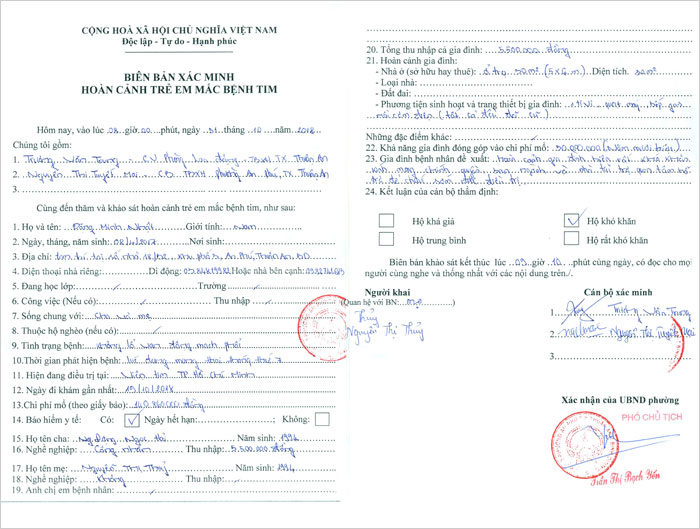 CỘNG HOÀ XÃ HỘI CHỦ NGHĨA VIỆT NAM
Độc lập - Tự do - Hạnh phúc
BIÊN BẢN XÁC MINH
HOÀN CẢNH TRẺ EM MẮC BỆNH TIM
Hôm nay, vào lúc 08 giờ 00 phút, ngày 31 tháng 10 năm 2018
Chúng tôi gồm:
1. Trương Văn Trung - CV Phòng Lao động TBXH TX Thuận An
2. Nguyễn Thị Tuyết Mai - CB TBXH Phường An Phú, TX Thuận An
3.
Cùng đến thăm và khảo sát hoàn cảnh trẻ em mắc bệnh tim, như sau:
1. Họ và tên: Đặng Minh Nhật Giới tính: Nam
2. Ngày, tháng, năm sinh: 08/10/2017 Nơi sinh:
3. Địa chỉ: số nhà 18/12 khu phố 2, An Phú, Thuận An, BD
4. Điện thoại nhà riêng: Di động: Hoặc nhà bên cạnh:
5. Đang học lớp: Trường
6. Công việc (Nếu có): Thu nhập
7. Sống chung với: Cha và mẹ
8. Thuộc hộ nghèo (nếu có):
9. Tình trạng bệnh: không lỗ van động mạch phổi
10.Thời gian phát hiện bệnh: lúc đang mang thai tháng thứ 7
11. Hiện đang điều trị tại: Viện tim TP Hồ Chí Minh
12. Ngày đi khám gần nhất: 19/10/2018
13.Chi phí mổ (theo giấy báo): đồng
14. Bảo hiểm y tế: Có: ✓ Ngày hết hạn: ; Không:
15. Họ tên cha: Ng Đăng Ngọc Năm sinh: 1994
16. Nghề nghiệp: Công nhân Thu nhập: 5.500.000 đồng
17. Họ tên mẹ: Nguyễn Thị Thủy Năm sinh: 1994
18. Nghề nghiệp: Không Thu nhập:
19. Anh chị em bệnh nhân:
20. Tổng thu nhập cả gia đình: 5.500.000 đồng
21. Hoàn cảnh gia đình:
- Nhà ở (sở hữu hay thuê): ở trọ 30m² (5x6m) Diện tích: 30m²
- Loại nhà:
- Đất đai:
- Phương tiện sinh hoạt và trang thiết bị gia đình: quạt máy, bếp gas
nồi cơm điện (tất cả đều đã cũ)
Những đặc điểm khác:
22. Khả năng gia đình đóng góp vào chi phí mổ: 50.000.000 (Năm mươi triệu)
23. Gia đình bệnh nhân đề xuất: hoàn cảnh gia đình hiện nay khó khăn
kính mong chính quyền, ban ngành và nhà tài trợ quan tâm hỗ
trợ để cháu sớm điều trị
24. Kết luận của cán bộ thẩm định:
Hộ khá giả
✓ Hộ khó khăn
Hộ trung bình
Hộ rất khó khăn
Biên bản khảo sát kết thúc lúc 09 giờ 10 phút cùng ngày, có đọc cho mọi
người cùng nghe và thống nhất với các nội dung trên./.
Người khai
(Quan hệ với BN: mẹ)
Thủy
Nguyễn Thị Thủy
Cán bộ xác minh
1. Trương Văn Trung
2. Nguyễn Thị Tuyết Mai
3.
Xác nhận của UBND phường
PHÓ CHỦ TỊCH
Trần Thị Bạch Yến